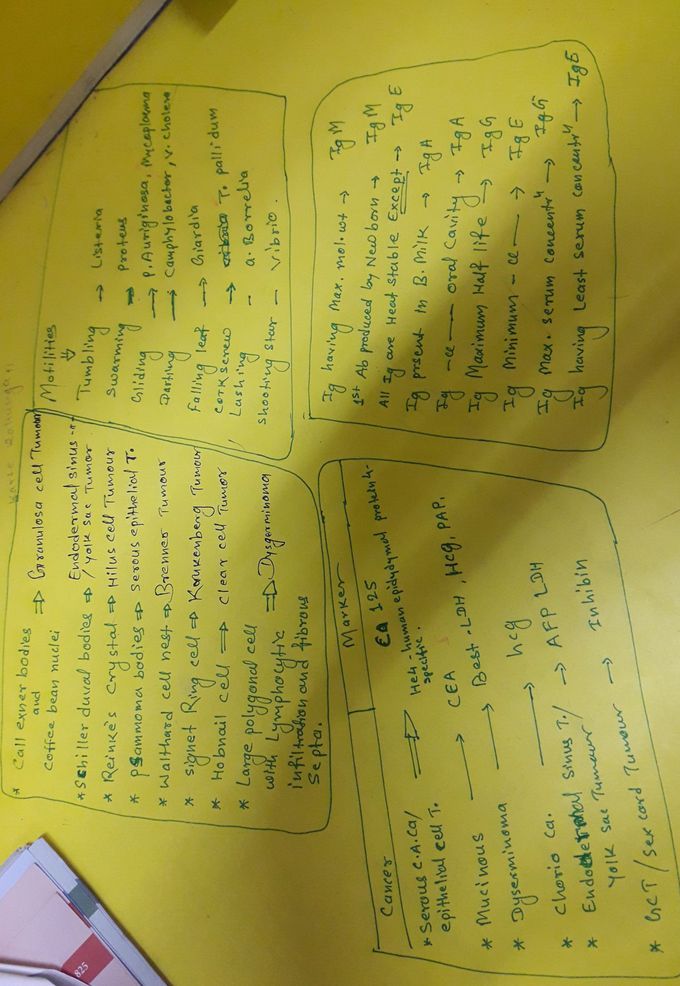 * Call exner bodies ⇒ Granulosa cell Tumour
and
coffee bean nuclei
* Schiller duval bodies ⇒ Endodermal sinus T.
/ Yolk sac Tumor
* Reinke's Crystal ⇒ Hilus cell Tumour
* psammoma bodies ⇒ serous epithelial T.
* Walthard cell nest ⇒ Brenner Tumour
* signet Ring cell ⇒ Krukenberg Tumour
* Hobnail cell ⇒ clear cell Tumor
* Large polygonal cell ⇒ Dysgerminoma
with Lymphocytic
infiltration and fibrous
septa.
Motilities
⇓
Tumbling → Listeria
Swarming → Proteus
Gliding → P. Auriginosa, Mycoplasma
Darting → Camphylobactor, V. cholera
Falling leaf → Giardia
cork screw → T. pallidum
Lashing - a. Borrelia
shooting star - Vibrio.
Cancer Marker
* Serous C.A.Ca/ ⇒ CA 125
epithelial cell T. He4 - human epididymal protein 4
specific.
* Mucinous → CEA
* Dyserminoma → Best - LDH, Hcg, PAP,
* Chorio Ca. → hcg
* Endodermal Sinus T./ → AFP LDH
Yolk sac Tumour
* GCT / sex cord Tumour → Inhibin
Ig having Max. mol. wt → IgM
1st Ab produced by Newborn → IgM
All Ig are Heat Stable Except → IgE
Ig present In B. Milk → IgA
Ig -॥- oral Cavity → IgA
Ig Maximum Half life → IgG
Ig Minimum -॥- → IgE
Ig Max. serum concentrn → IgG
Ig having Least serum concentrn → IgE
825